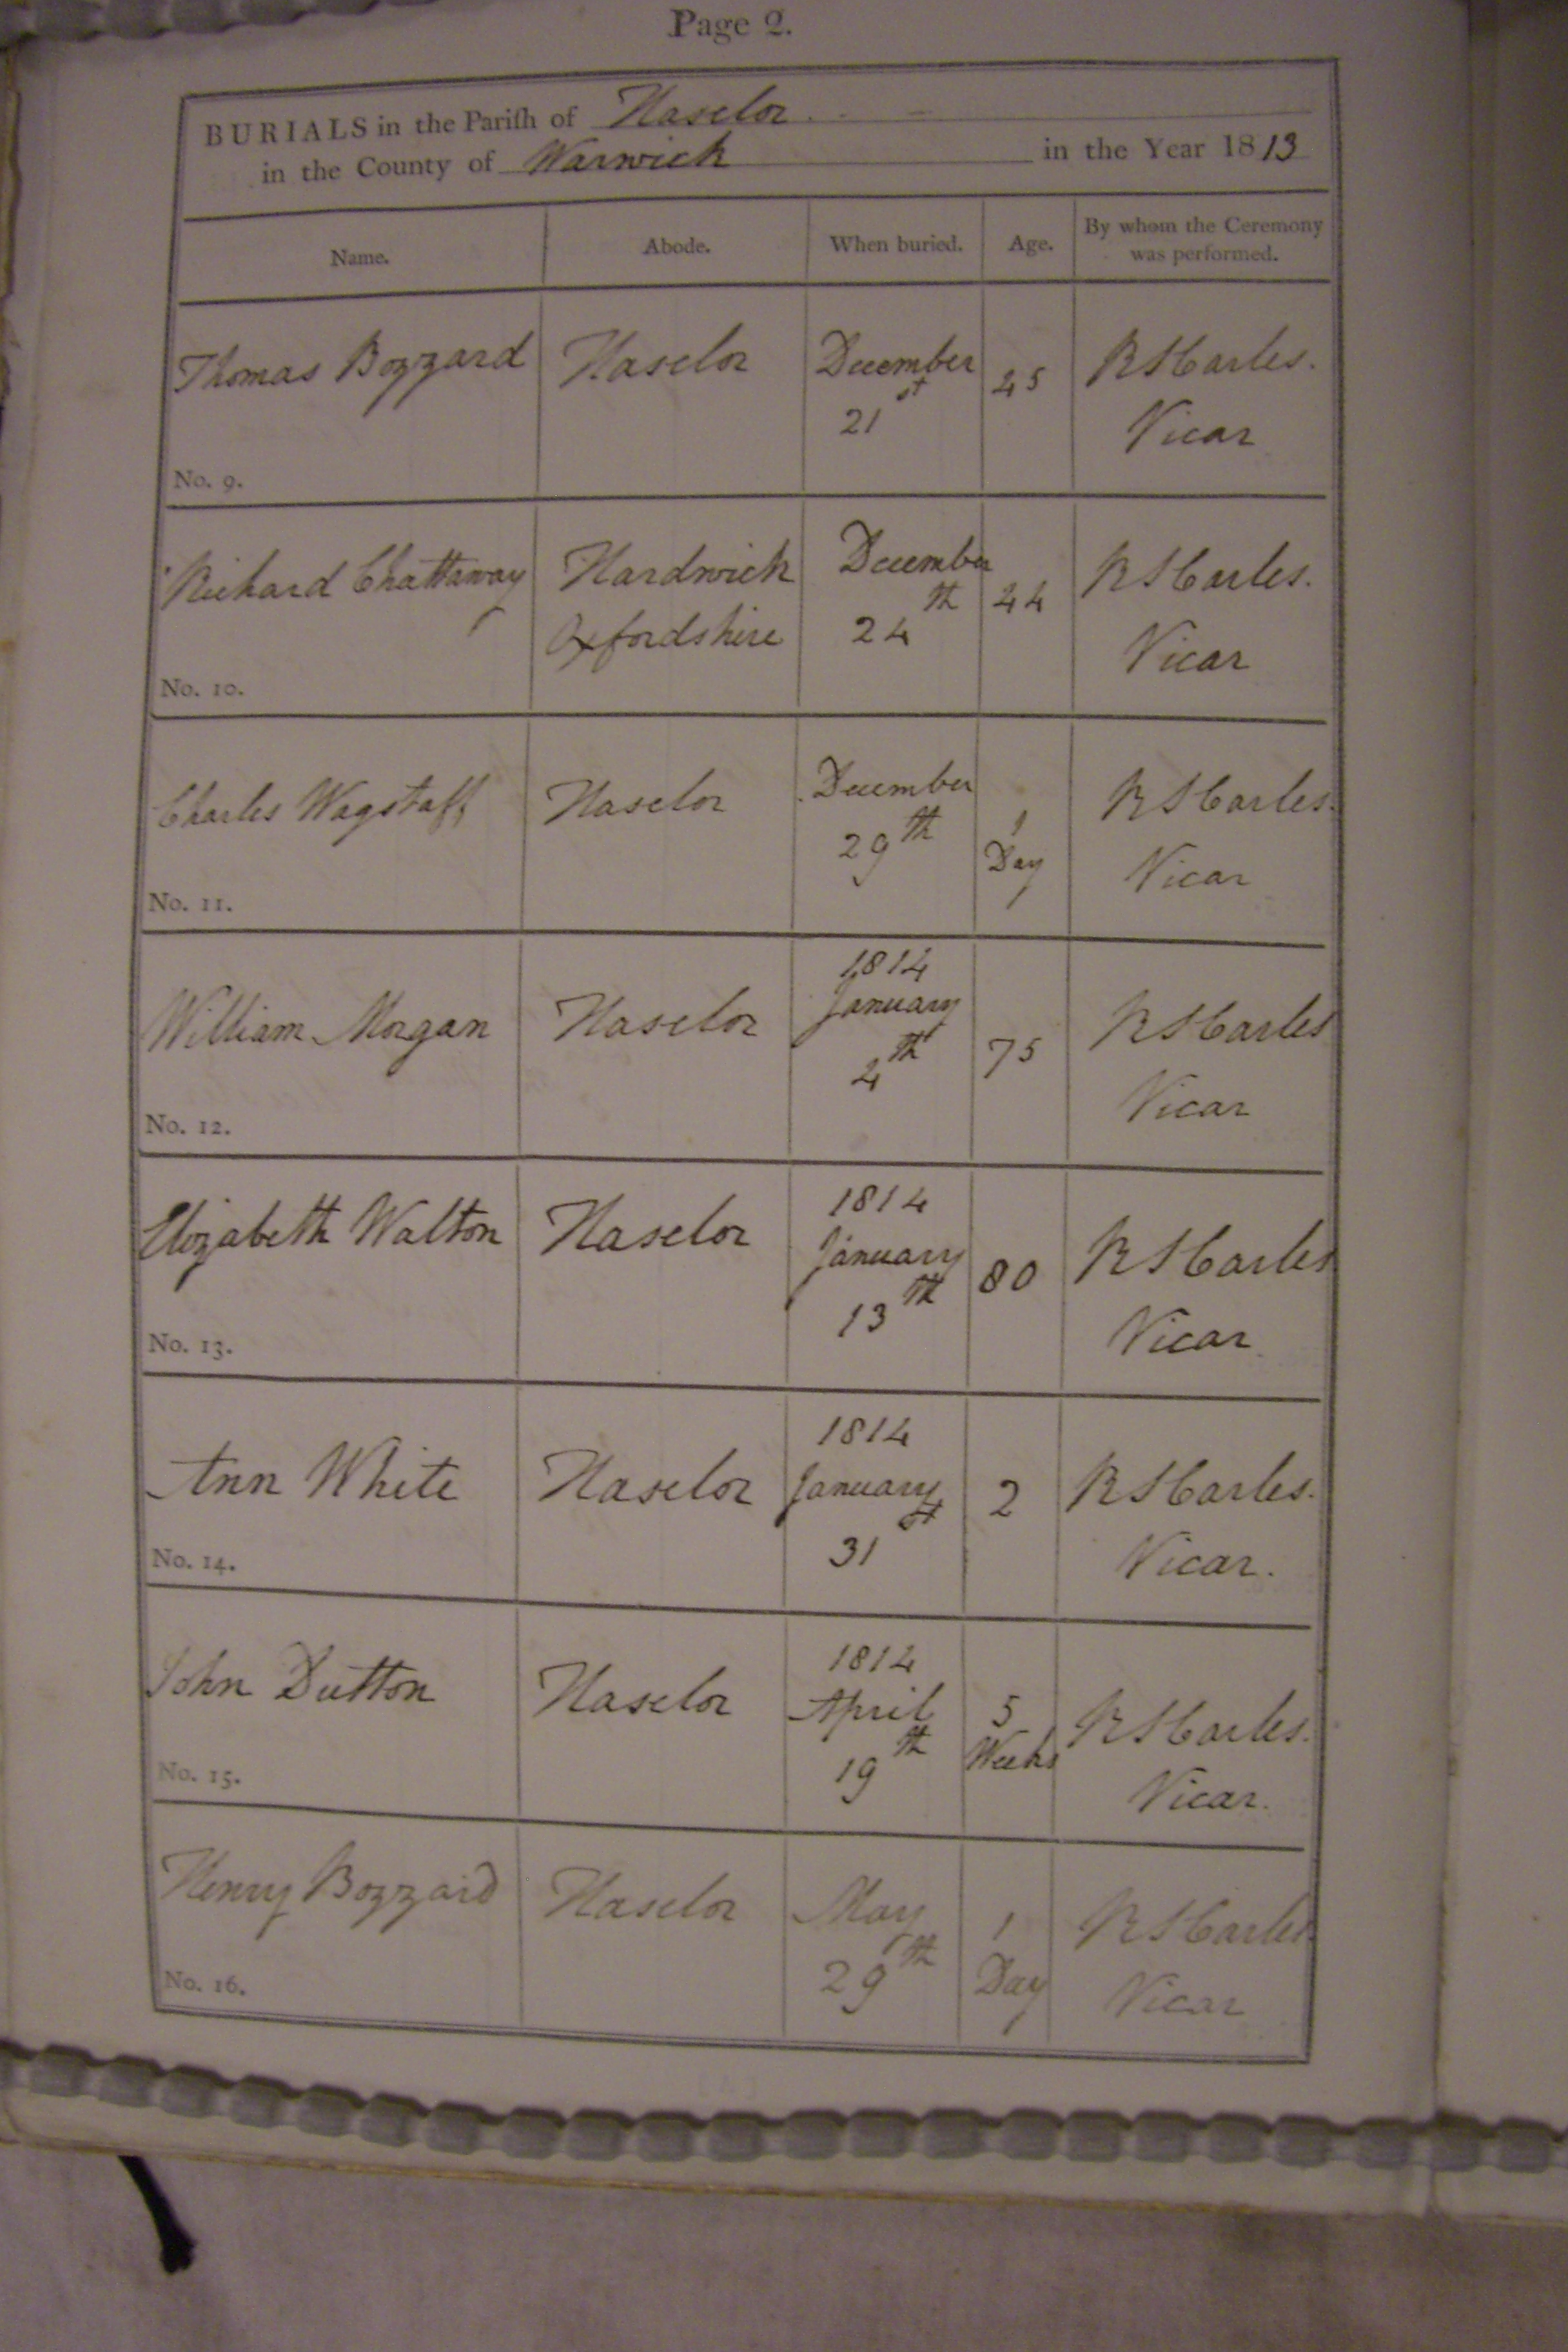 Page 2.
BURIALS in the Pariſh of Haselor
in the County of Warwick in the Year 1813
Name. Abode. When buried. Age. By whom the Ceremony was performed.
Thomas Bozzard Haselor December 21st 45 R S Carles. Vicar
No. 9.
Richard Chattaway Hardwick Oxfordshire December 24th 44 R S Carles. Vicar
No. 10.
Charles Wagstaff Haselor December 29th 1 Day R S Carles. Vicar
No. 11.
William Morgan Haselor 1814 January 4th 75 R S Carles Vicar
No. 12.
Elizabeth Walton Haselor 1814 January 13th 80 R S Carles Vicar
No. 13.
Ann White Haselor 1814 January 31st 2 R S Carles. Vicar.
No. 14.
John Dutton Haselor 1814 April 19th 5 Weeks R S Carles. Vicar.
No. 15.
Henry Bozzard Haselor May 29th 1 Day R S Carles. Vicar
No. 16.